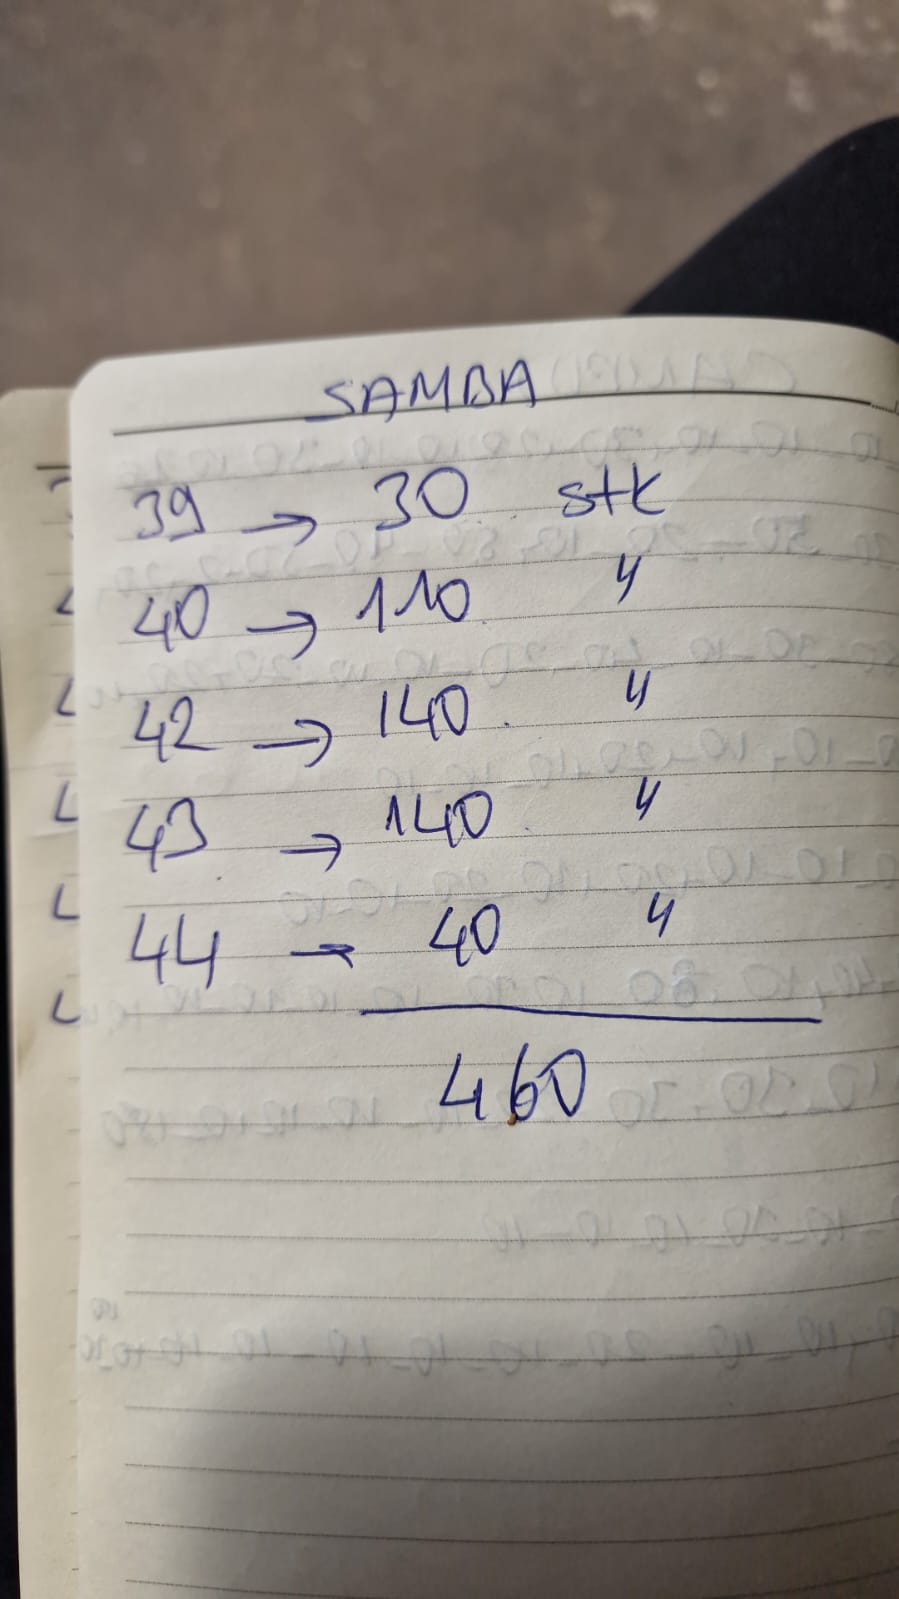 SAMBA
39 → 30 stk
40 → 110 "
42 → 140 "
43 → 140 "
44 → 40 "
460